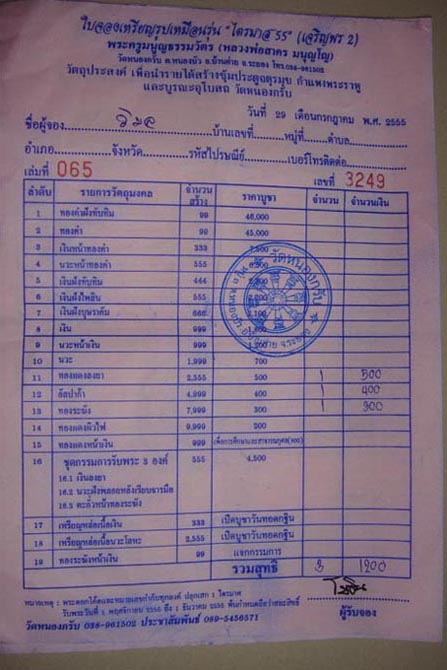 ใบจองเหรียญรูปเหมือนรุ่น "ไตรมาส 55" (เจริญพร 2)
พระครูมนูญธรรมวัตร (หลวงพ่อสาคร มนุญฺโญ)
วัดหนองกรับ ต.หนองบัว อ.บ้านค่าย จ.ระยอง โทร.038-961502
วัตถุประสงค์ เพื่อนำรายได้สร้างซุ้มประตูจตุรมุข กำแพงพระราหู
และบูรณะอุโบสถ วัดหนองกรับ
วันที่ 29 เดือนกรกฎาคม พ.ศ. 2555
ชื่อผู้จอง วิมล บ้านเลขที่ หมู่ที่ ตำบล
อำเภอ จังหวัด รหัสไปรษณีย์ เบอร์โทรติดต่อ
เล่มที่ 065 เลขที่ 3249
ลำดับ รายการวัตถุมงคล จำนวนสร้าง ราคาบูชา จำนวน จำนวนเงิน
1 ทองคำฝังทับทิม 99 46,000
2 ทองคำ 99 45,000
3 เงินหน้าทองคำ 333
4 นวะหน้าทองคำ 555
5 เงินฝังทับทิม 444
6 เงินฝังไพลิน 555
7 เงินฝังบุษราคัม 666
8 เงิน 999
9 นวะหน้าเงิน 999
10 นวะ 1,999 700
11 ทองแดงลงยา 2,555 500 1 500
12 อัลปาก้า 4,999 400 1 400
13 ทองระฆัง 7,999 300 1 300
14 ทองแดงผิวไฟ 9,999 200
15 ทองแดงหน้าเงิน 999 เพื่อการศึกษาและสาธารณกุศล(300)
16 ชุดกรรมการรับพระ 3 องค์ 555 4,500
16.1 เงินลงยา
16.2 นวะฝังพลอยหลังเรียบจารมือ
16.3 ตะกั่วหน้าทองระฆัง
17 เหรียญหล่อเนื้อเงิน 333 เปิดบูชาวันทอดกฐิน
18 เหรียญหล่อเนื้อนวะโลหะ 2,555 เปิดบูชาวันทอดกฐิน
19 ทองระฆังหน้าเงิน 99 แจกกรรมการ
รวมสุทธิ 3 1200
หมายเหตุ : พระตอกโค๊ตและหมายเลขกำกับทุกองค์ ปลุกเสก 1 ไตรมาส
รับพระวันที่ 1 พฤศจิกายน 2555 ถึง 1 ธันวาคม 2555 พ้นกำหนดถือว่าสละสิทธิ์ ผู้รับจอง
วัดหนองกรับ 038-961502 ประชาสัมพันธ์ 089-5456571